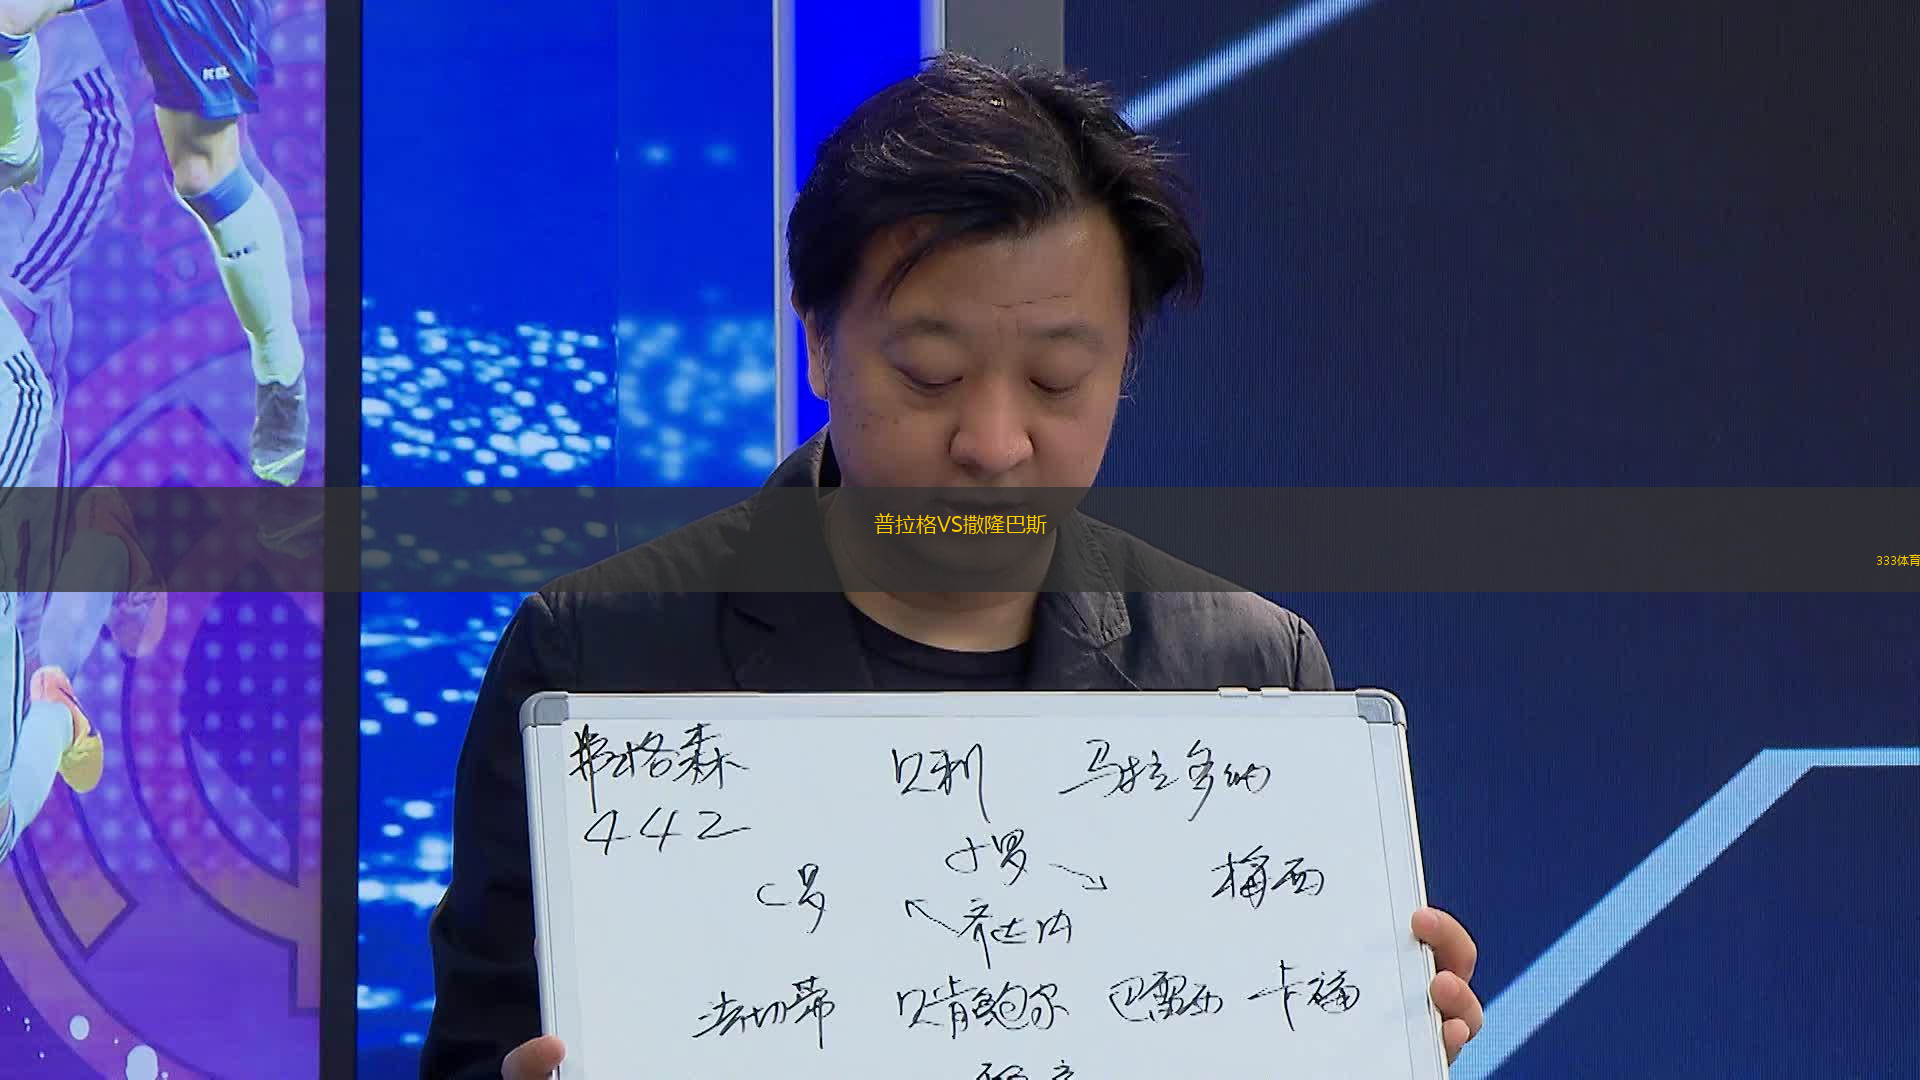 普拉格VS撒隆巴斯
333体育
弗格森 贝利 马拉多纳
442
小罗
C罗 梅西
齐达内
法切蒂 贝肯鲍尔 巴雷西 卡福